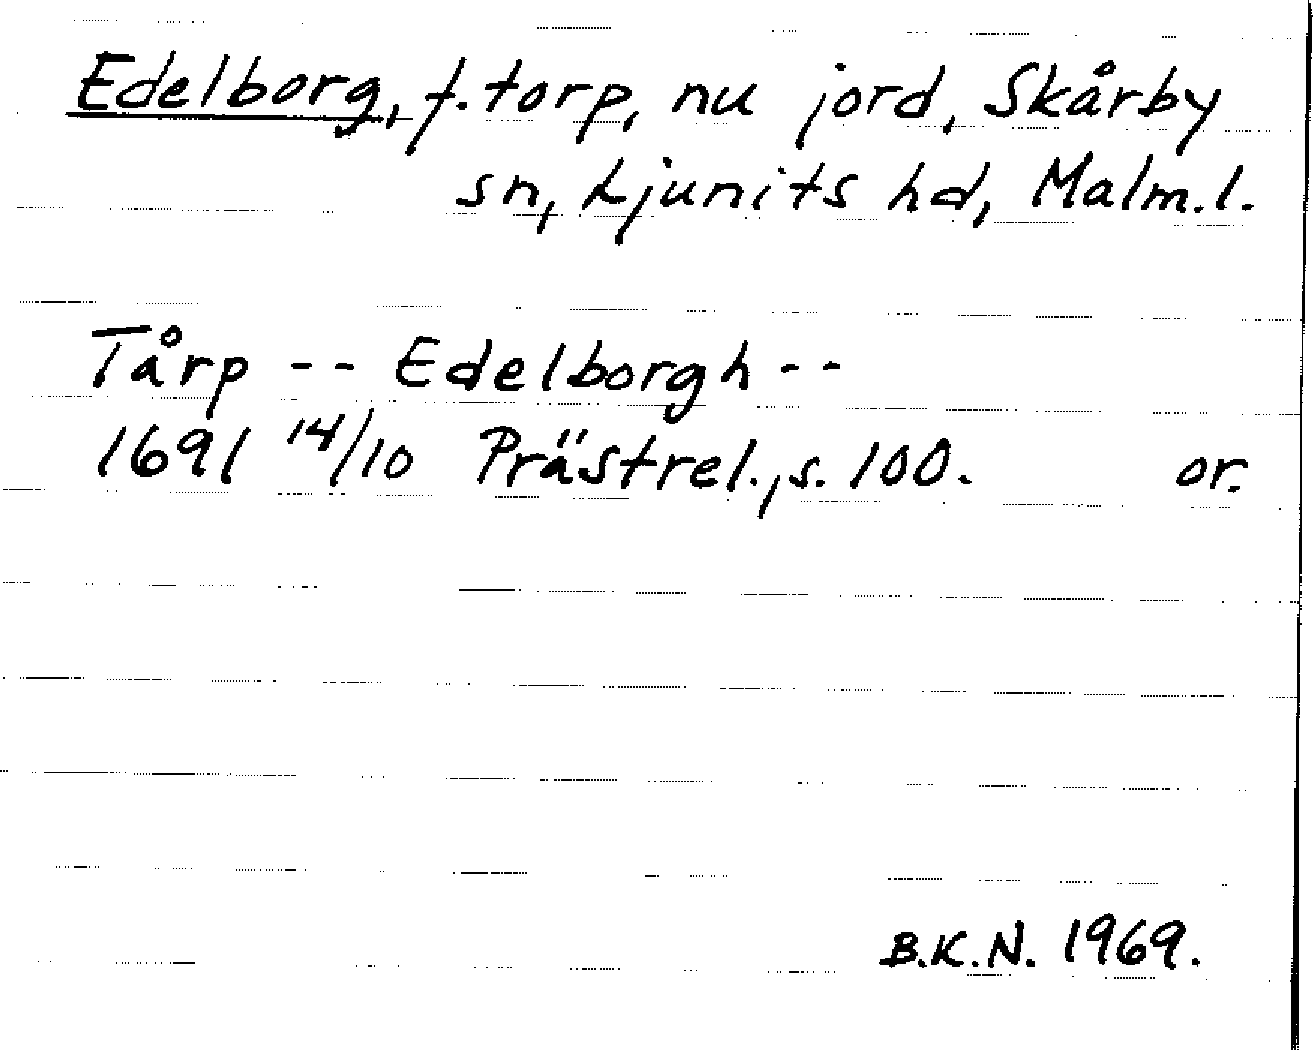 Edelborg, f. torp, nu jord, Skårby
sn, Ljunits hd, Malm.l.
Tårp -- Edelborgh --
1691 14/10 Prästrel., s. 100. or.
B.K.N. 1969.